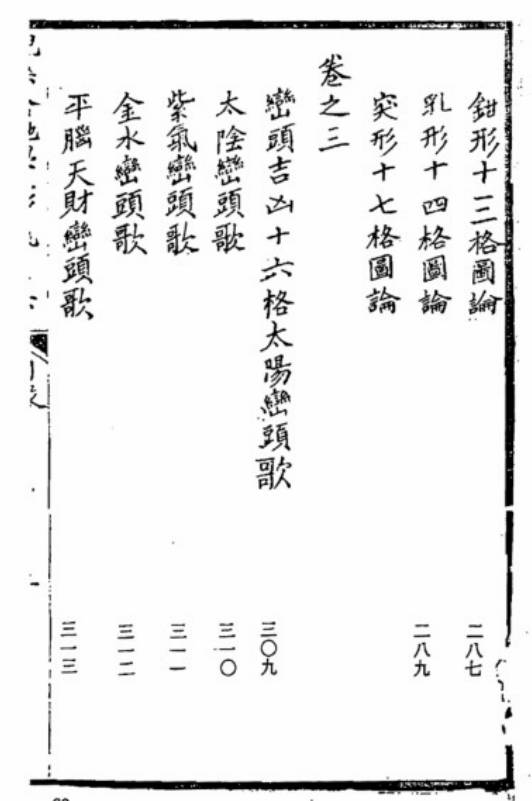 鉗形十二格圖論 二八七
乳形十四格圖論 二八九
突形十七格圖論
卷之三
巒頭吉凶十六格太陽巒頭歌 三〇九
太陰巒頭歌 三一〇
紫氣巒頭歌 三一一
金水巒頭歌 三一二
平腦天財巒頭歌 三一三